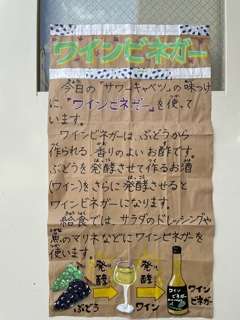 ワインビネガー
今日の「サワーキャベツ」の味つけ
に、「ワインビネガー」を使って
います。
ワインビネガーは、ぶどうから
作られる香りのよいお酢です。
ぶどうを発酵させて作るお酒
(ワイン)をさらに発酵させると
ワインビネガーになります。
給食では、サラダのドレッシングや
魚のマリネなどにワインビネガーを
使います。
発酵
発酵
ワイン
ビネガー
ぶどう
ワイン
ワイン
ビネガー